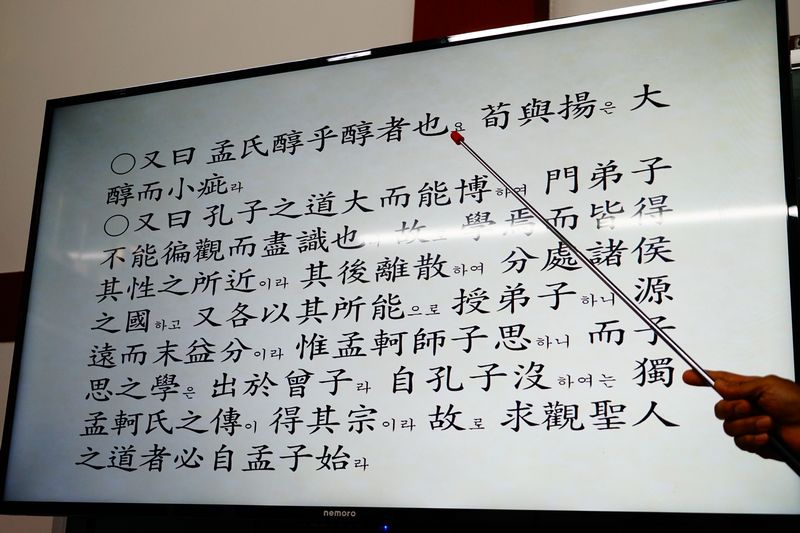 ○又曰 孟氏醇乎醇者也요 荀與揚은 大
醇而小疵라
○又曰 孔子之道大而能博하여 門弟子
不能徧觀而盡識也 故로 學焉而皆得
其性之所近이라 其後離散하여 分處諸侯
之國하고 又各以其所能으로 授弟子하니 源
遠而末益分이라 惟孟軻師子思하니 而子
思之學은 出於曾子라 自孔子沒하여는 獨
孟軻氏之傳이 得其宗이라 故로 求觀聖人
之道者必自孟子始라
nemoro